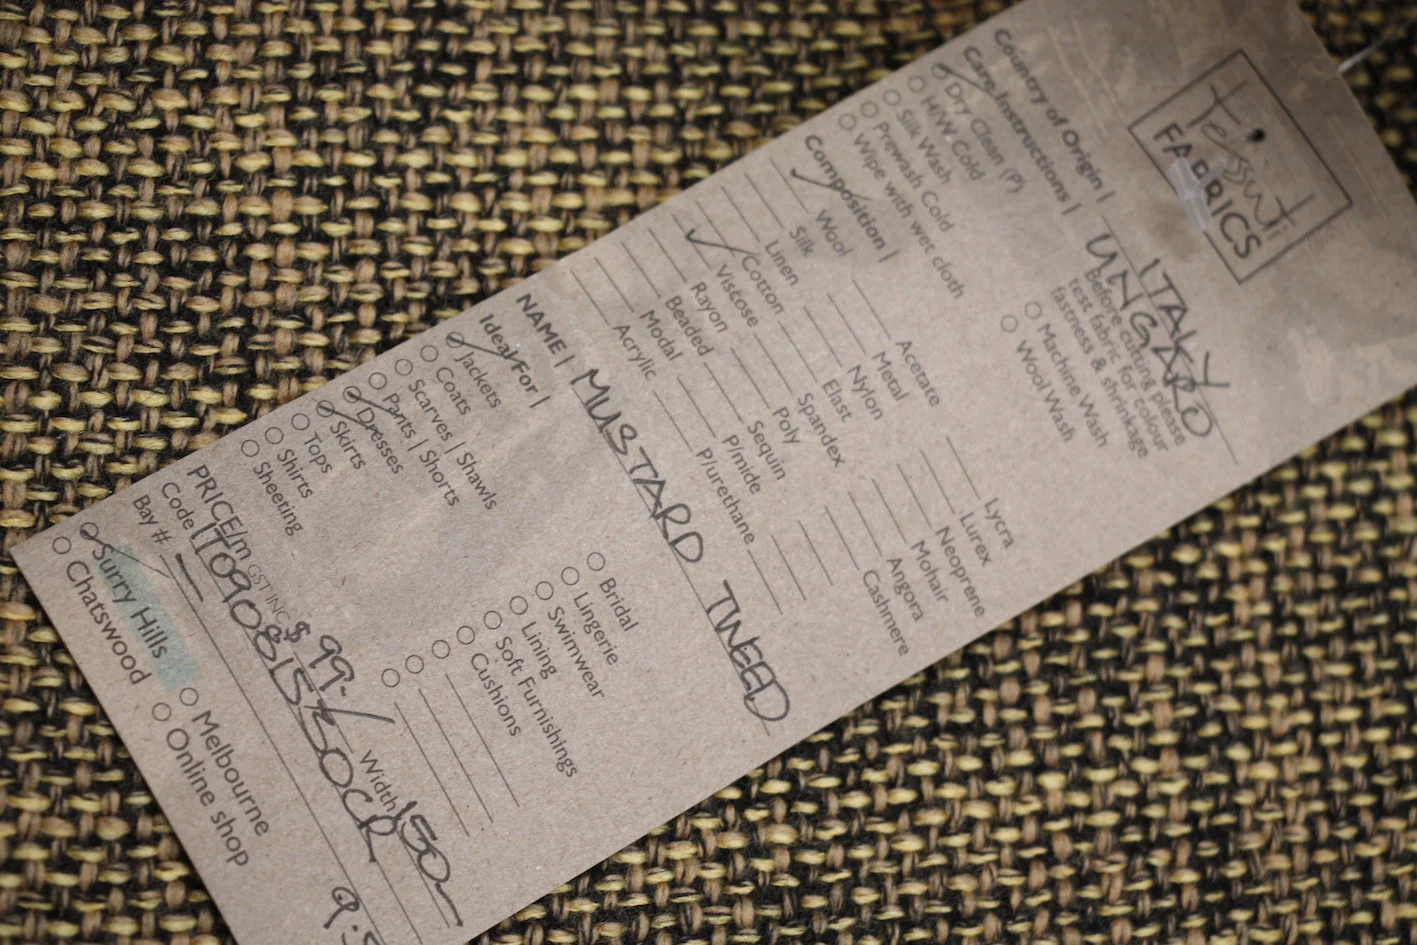 Tessuti
FABRICS
Country of Origin | ITALY
UNGARO
Care Instructions |
Before cutting please
test fabric for colour
fastness & shrinkage
Dry Clean (P)
H/W Cold
Silk Wash
Prewash Cold
Wipe with wet cloth
Machine Wash
Wool Wash
Composition |
Wool
Silk
Linen
Cotton
Viscose
Rayon
Beaded
Modal
Acrylic
Acetate
Metal
Nylon
Elast
Spandex
Poly
Sequin
P/mide
P/urethane
Lycra
Lurex
Neoprene
Mohair
Angora
Cashmere
NAME | MUSTARD TWEED
Ideal For |
Jackets
Coats
Scarves | Shawls
Pants | Shorts
Dresses
Skirts
Tops
Shirts
Sheeting
Bridal
Lingerie
Swimwear
Lining
Soft Furnishings
Cushions
PRICE/m GST INC $ 99.- Width 150
Code
Bay #
Surry Hills
Chatswood
Melbourne
Online shop